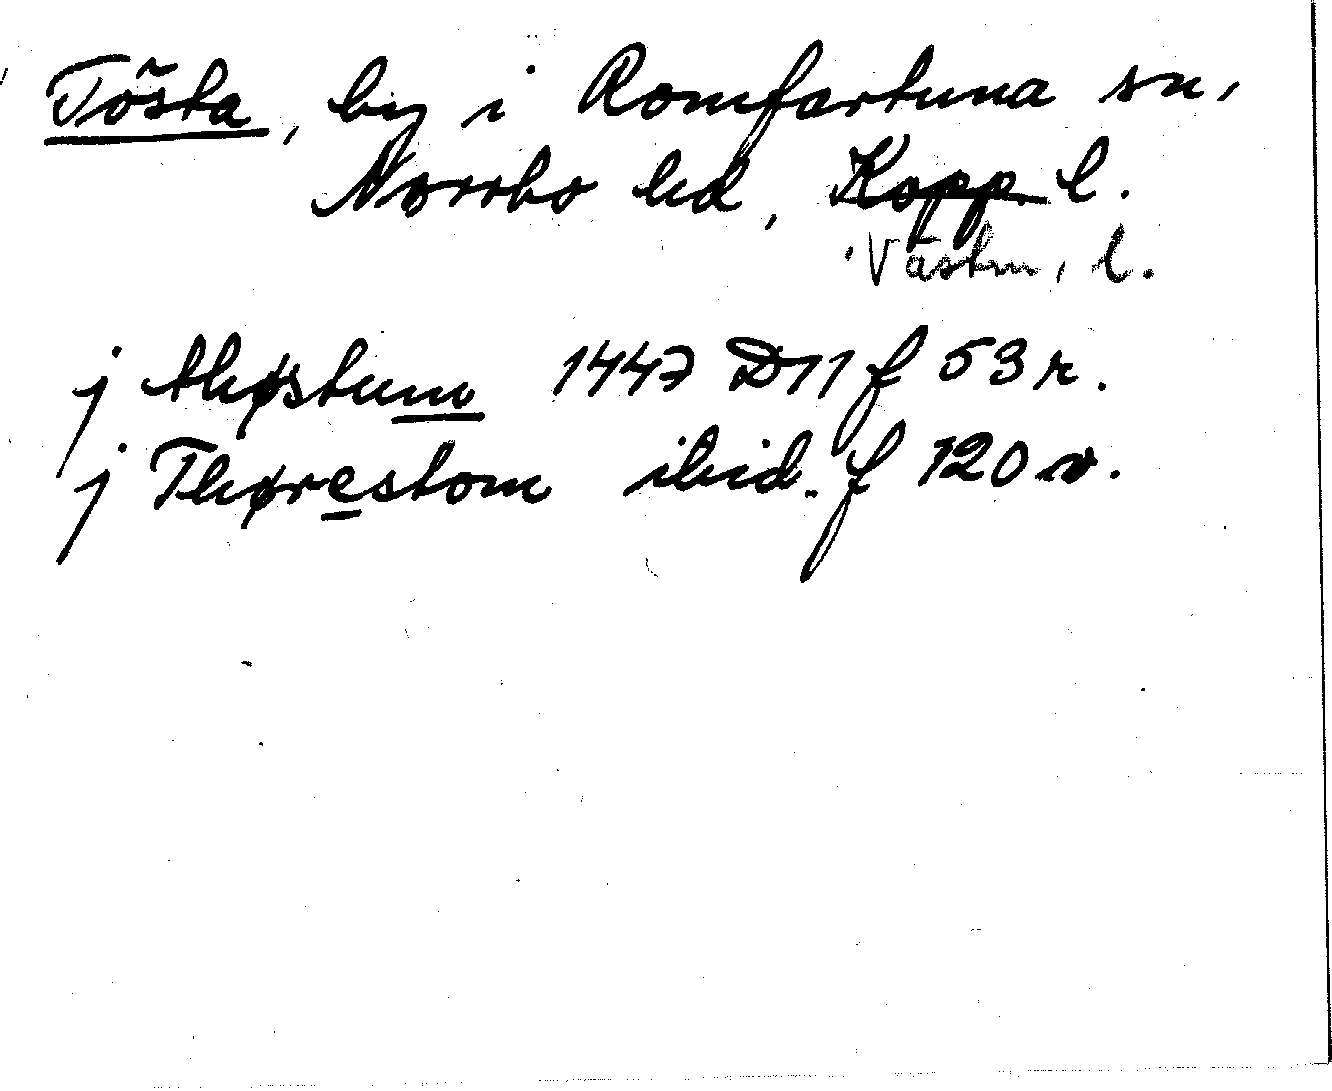 Tösta, by i Romfartuna sn,
Norrbo hd, Kopp l.
Västm, l.
j thøstum 1447 D11 f 53 r.
j Thørestom ibid. f 120 v.